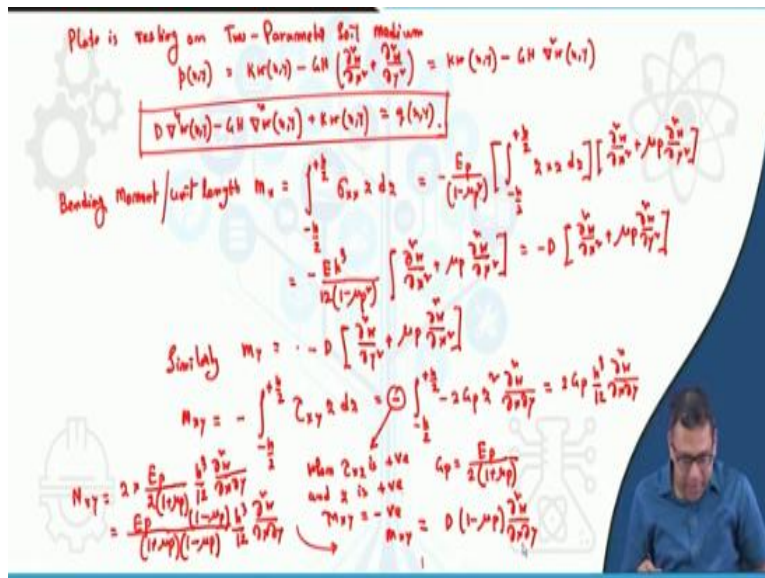 Plate is resting on Two-Parameter Soil medium
p(x,y) = kw(x,y) - GH (∂²w/∂x² + ∂²w/∂y²) = kw(x,y) - GH ∇²w(x,y)
D∇⁴w(x,y) - GH ∇²w(x,y) + kw(x,y) = q(x,y).
Bending Moment/unit length mx = ∫_{-h/2}^{+h/2} σxx z dz = - Ep/(1-μp²) [∫_{-h/2}^{+h/2} z×z dz] [∂²w/∂x² + μp ∂²w/∂y²]
= - Eh³/12(1-μp²) [∂²w/∂x² + μp ∂²w/∂y²] = -D [∂²w/∂x² + μp ∂²w/∂y²]
Similarly my = - D [∂²w/∂y² + μp ∂²w/∂x²]
Mxy = - ∫_{-h/2}^{+h/2} τxy z dz = - ∫_{-h/2}^{+h/2} -2Gp z² ∂²w/∂x∂y = 2Gp h³/12 ∂²w/∂x∂y
when τxz is +ve
and z is +ve
mxy = -ve
Gp = Ep/2(1+μp)
Mxy = 2× Ep/2(1+μp) h³/12 ∂²w/∂x∂y
= Ep (1-μp)/(1+μp)(1-μp) h³/12 ∂²w/∂x∂y
mxy = D(1-μp) ∂²w/∂x∂y